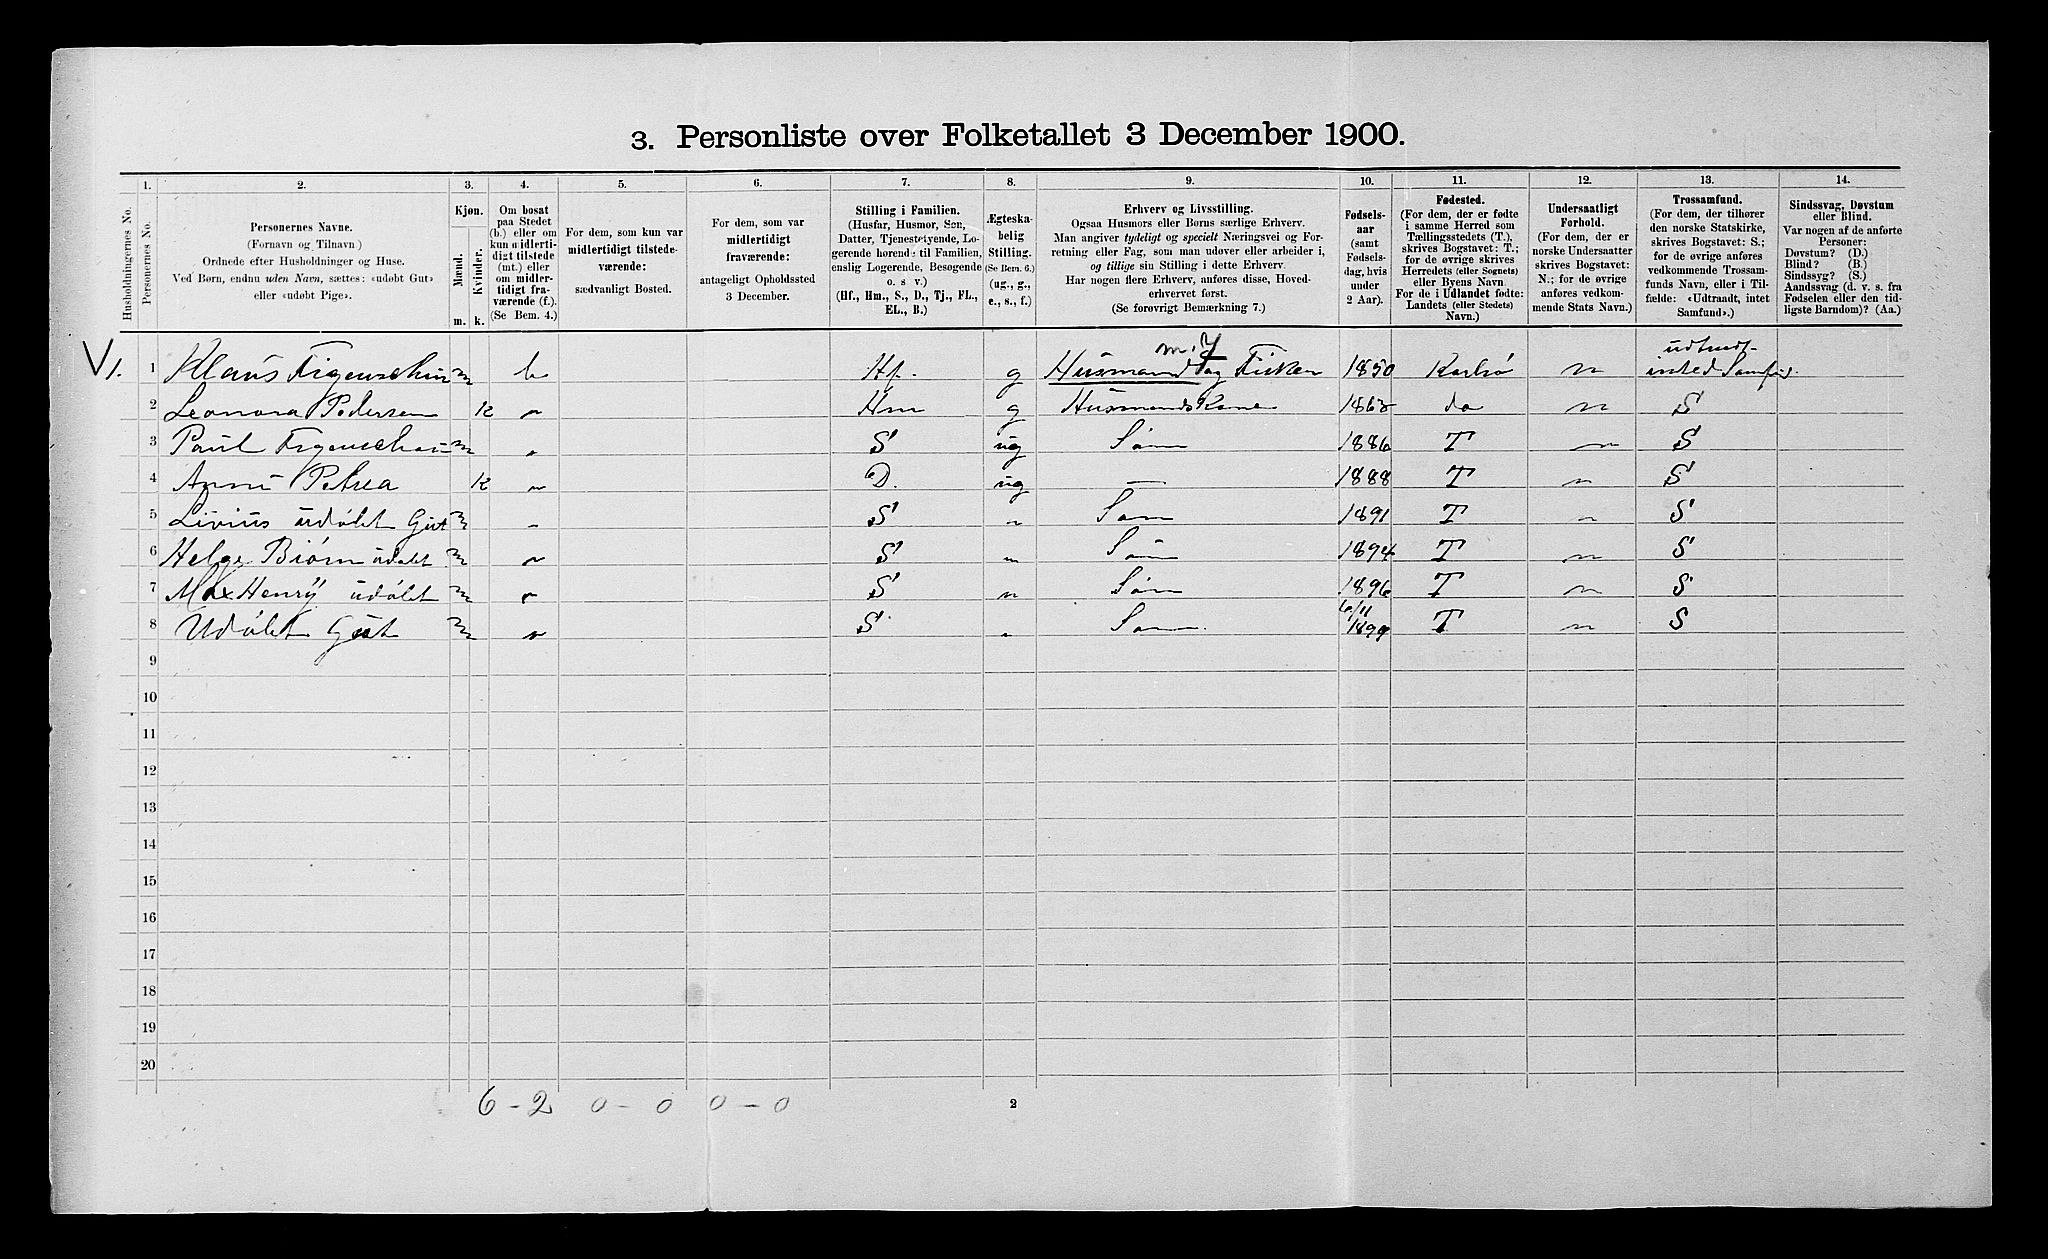 3. Personliste over Folketallet 3 December 1900.
1. 2. 3. 4. 5. 6. 7. 8. 9. 10. 11. 12. 13. 14.
Husholdningernes No.
Personernes No.
Personernes Navne.
(Fornavn og Tilnavn)
Ordnede efter Husholdninger og Huse.
Ved Børn, endnu uden Navn, sættes: «udøbt Gut»
eller «udøbt Pige».
Kjøn.
Mænd.
Kvinder.
m. k.
Om bosat
paa Stedet
(b.) eller om
kun midlerti-
digt tilstede
(mt.) eller
om midler-
tidigt fra-
værende (f.).
(Se Bem. 4.)
For dem, som kun var
midlertidigt tilstede-
værende:
sædvanligt Bosted.
For dem, som var
midlertidigt
fraværende:
antageligt Opholdssted
3 December.
Stilling i Familien.
(Husfar, Husmor, Søn,
Datter, Tjenestetyende, Lo-
gerende hørende til Familien,
enslig Logerende, Besøgende
o. s v.)
(Hf., Hm., S., D., Tj., FL.,
EL., B.)
Ægteska-
belig
Stilling.
(Se Bem. 6.)
(ug., g.,
e., s., f.)
Erhverv og Livsstilling.
Ogsaa Husmors eller Børns særlige Erhverv.
Man angiver tydeligt og specielt Næringsvei og For-
retning eller Fag, som man udøver eller arbeider i,
og tillige sin Stilling i dette Erhverv.
Har nogen flere Erhverv, anføres disse, Hoved-
erhvervet først.
(Se forøvrigt Bemærkning 7.)
Fødsels-
aar
(samt
Fødsels-
dag, hvis
under
2 Aar).
Fødested.
(For dem, der er fødte
i samme Herred som
Tællingsstedets (T.),
skrives Bogstavet: T.;
for de øvrige skrives
Herredets (eller Sognets)
eller Byens Navn
For de i Udlandet fødte:
Landets (eller Stedets)
Navn.)
Undersaatligt
Forhold.
(For dem, der er
norske Undersaatter
skrives Bogstavet:
N.; for de øvrige
anføres vedkom-
mende Stats Navn.)
Trossamfund.
(For dem, der tilhører
den norske Statskirke,
skrives Bogstavet: S.;
for de øvrige anføres
vedkommende Trossam-
funds Navn, eller i Til-
fælde: «Udtraadt, intet
Samfund».)
Sindssvag, Døvstum
eller Blind.
Var nogen af de anførte
Personer:
Døvstum? (D.)
Blind? (B.)
Sindssyg? (S.)
Aandssvag (d. v. s. fra
Fødselen eller den tid-
ligste Barndom)? (Aa.)
m. 7 udtradt
V 1. 1 Klaus Figenschau m b Hf. g Husmand og Fisker 1850 Karlsø n inted Samfu.
2 Leonora Pedersen K " Hm g Husmandskone do n S
3 Paul Figenschau m " S ug Søn 1886 T n S
4 Anna Petrea K " D. ug — 1888 T n S
5 Livius udølet Gut m " S " Søn 1891 T n S
6 Helge Biørn udølet m " S " Søn 1894 T n S
7 Max Henry udølet m " S " Søn 1896 T n S
8 Udølet Gut m " S. " Søn 6/11 1899 T n S
9
10
11
12
13
14
15
16
17
18
19
20
6 - 2 0 - 0 0 - 0 2